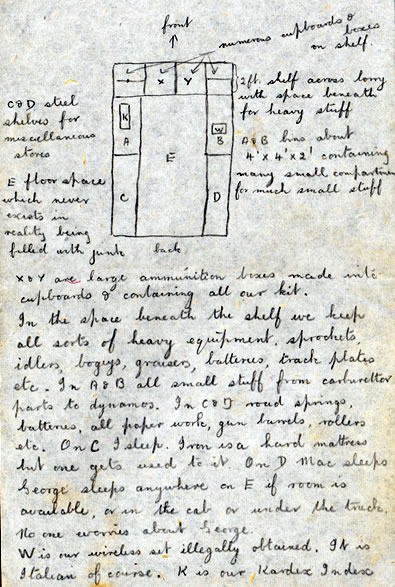 front
numerous cupboards & boxes
on shelf
X Y
2ft. shelf across lorry
with space beneath
for heavy stuff
C & D steel
shelves for
miscellaneous
stores
K
A
E
W
B
A & B bins about
4' x 4' x 2' containing
many small compartments
for much small stuff
E floor space
which never
exists in
reality being
filled with junk
C
D
back
X & Y are large ammunition boxes made into
cupboards & containing all our kit.
In the space beneath the shelf we keep
all sorts of heavy equipment, sprockets,
idlers, bogeys, greasers, batteries, track plates
etc. In A & B all small stuff from carburettor
parts to dynamos. In C & D road springs,
batteries, all paper work, gun barrels, rollers
etc. On C I sleep. Iron is a hard mattress
but one gets used to it. On D Mac sleeps
George sleeps anywhere on E if room is
available, or in the cab or under the truck.
No one worries about George.
W is our wireless set illegally obtained. It is
Italian of course. K is our Kardex Index